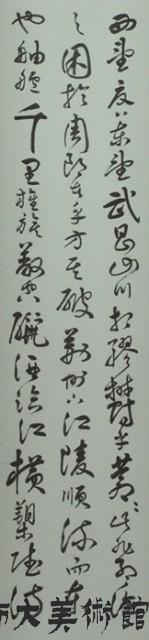 西望夏口東望武昌山川相繆鬱乎蒼〻此非孟德
之困於周郎者乎方其破荊州下江陵順流而東
也舳艫千里旌旗蔽空釃酒臨江橫槊賦詩
大美術館